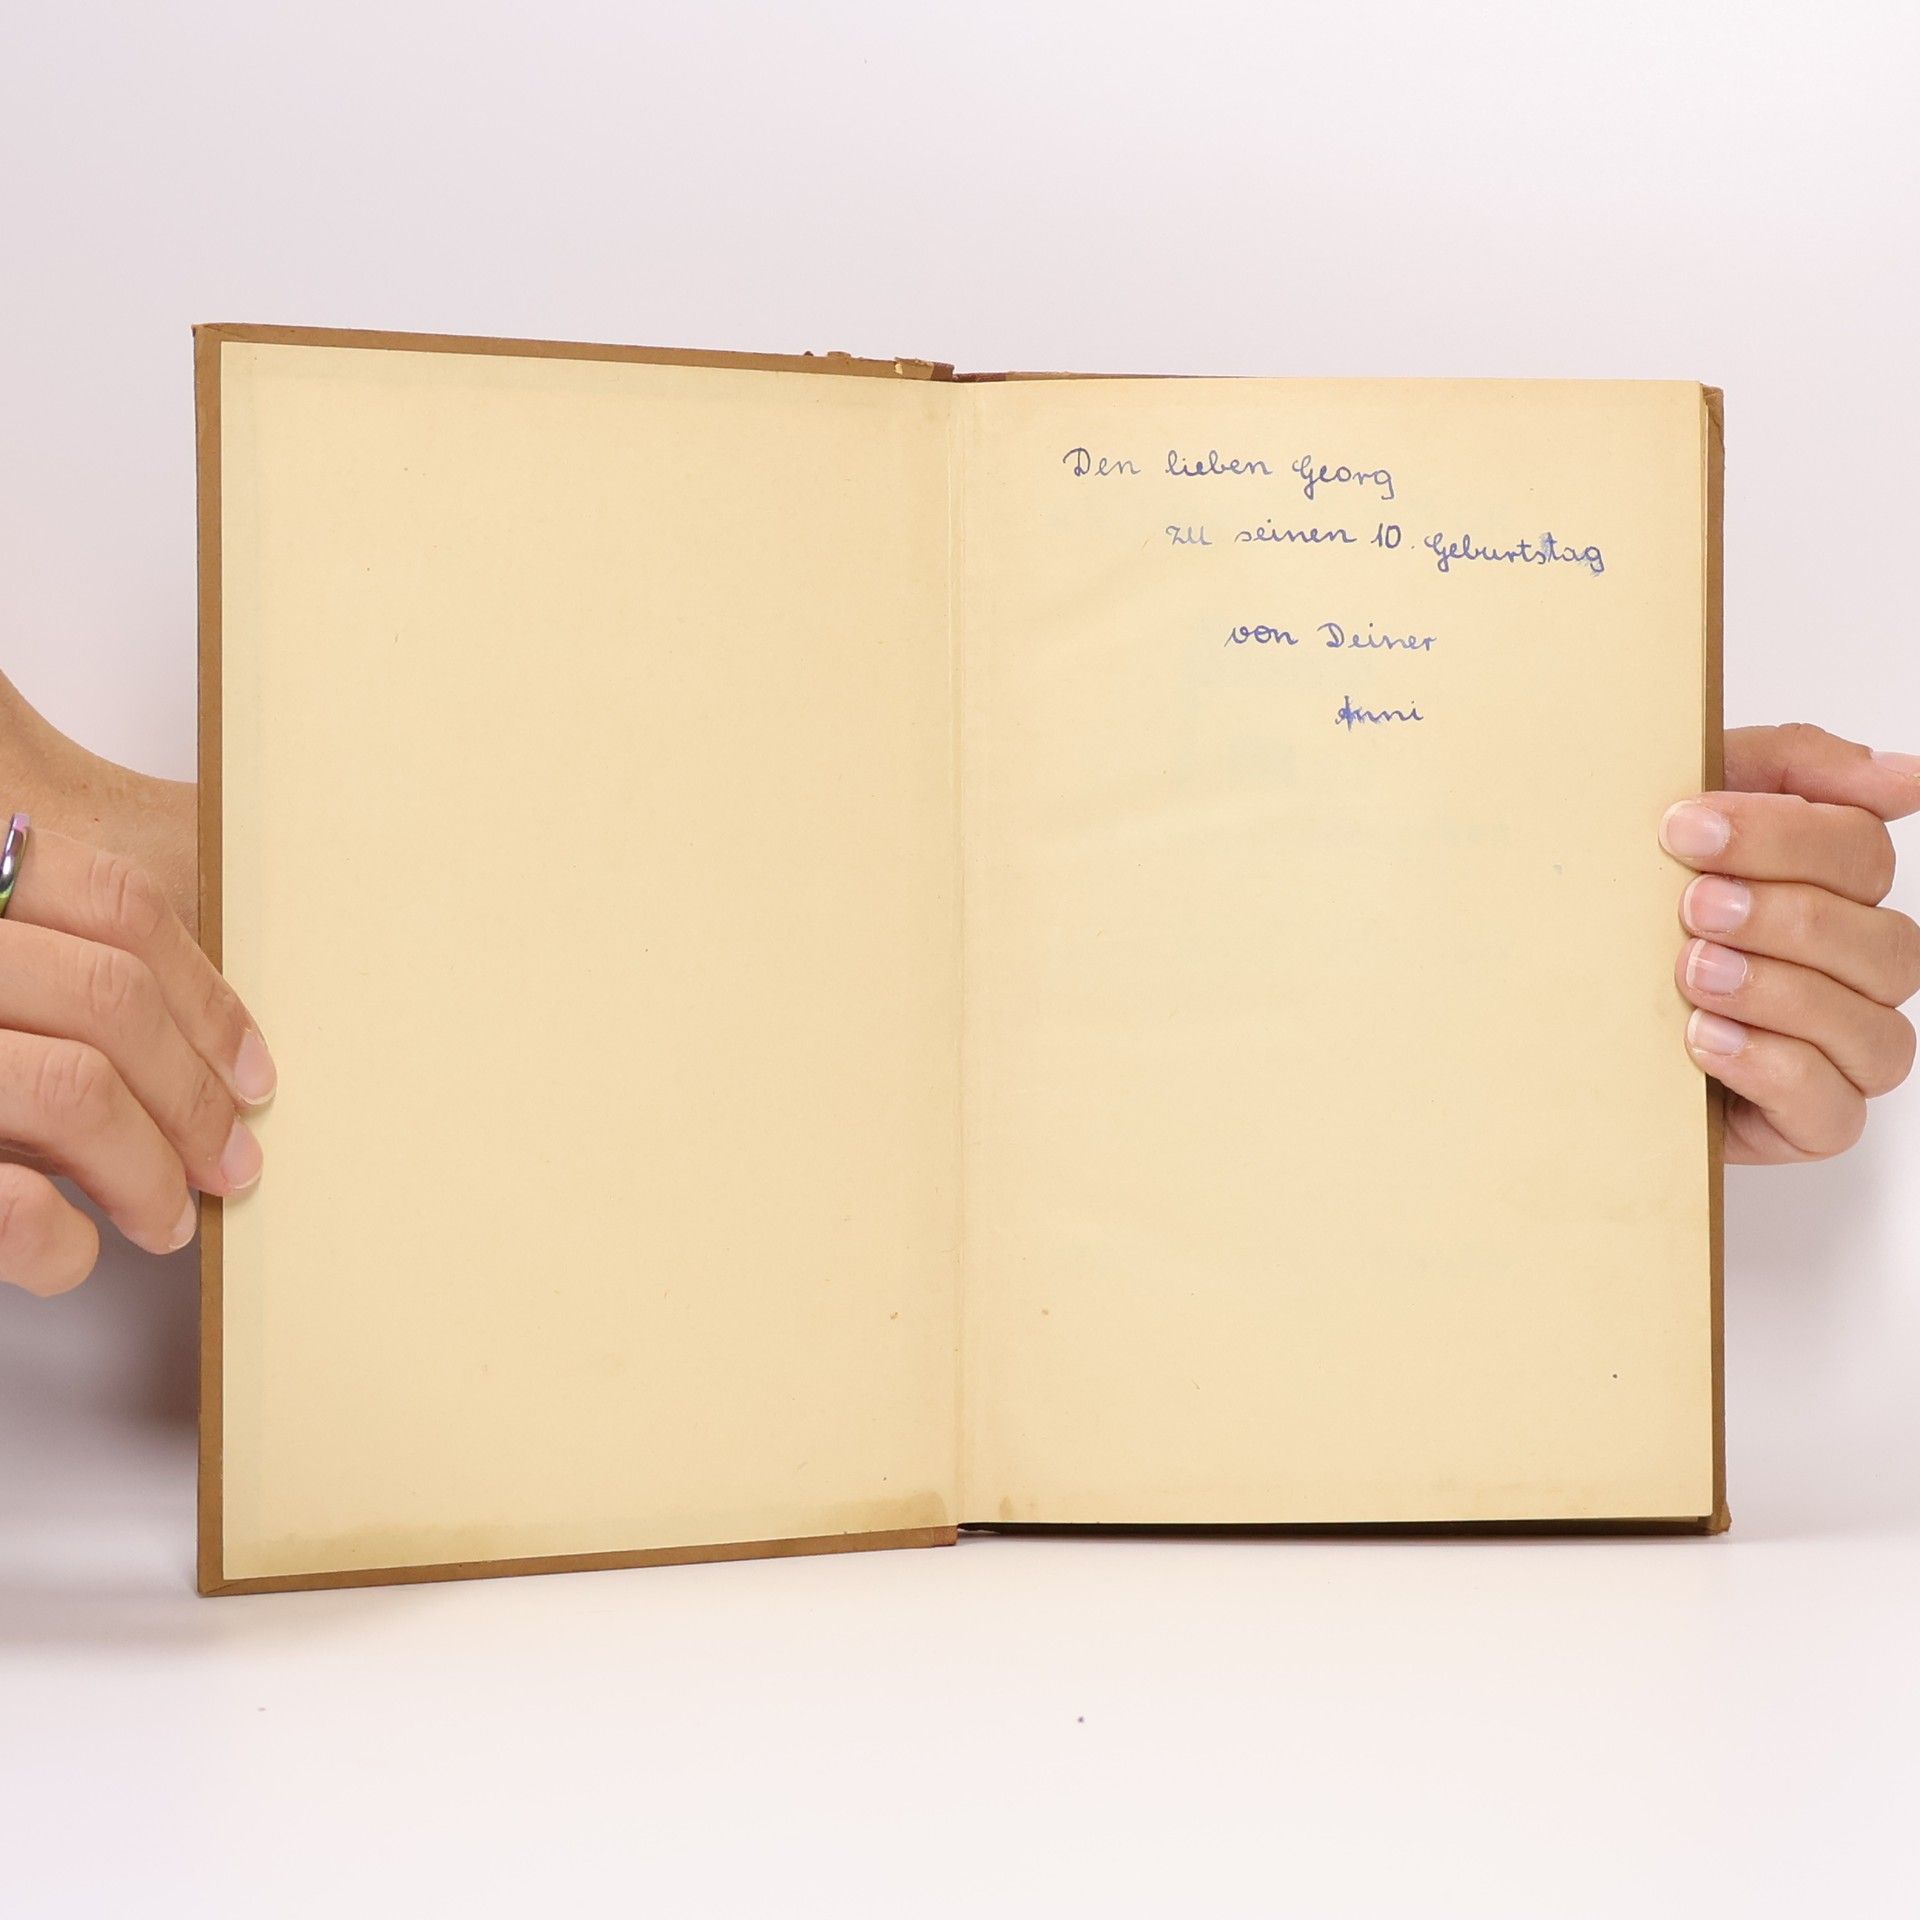 Den lieben Georg
zu seinen 10. Geburtstag
von Deiner
Anni